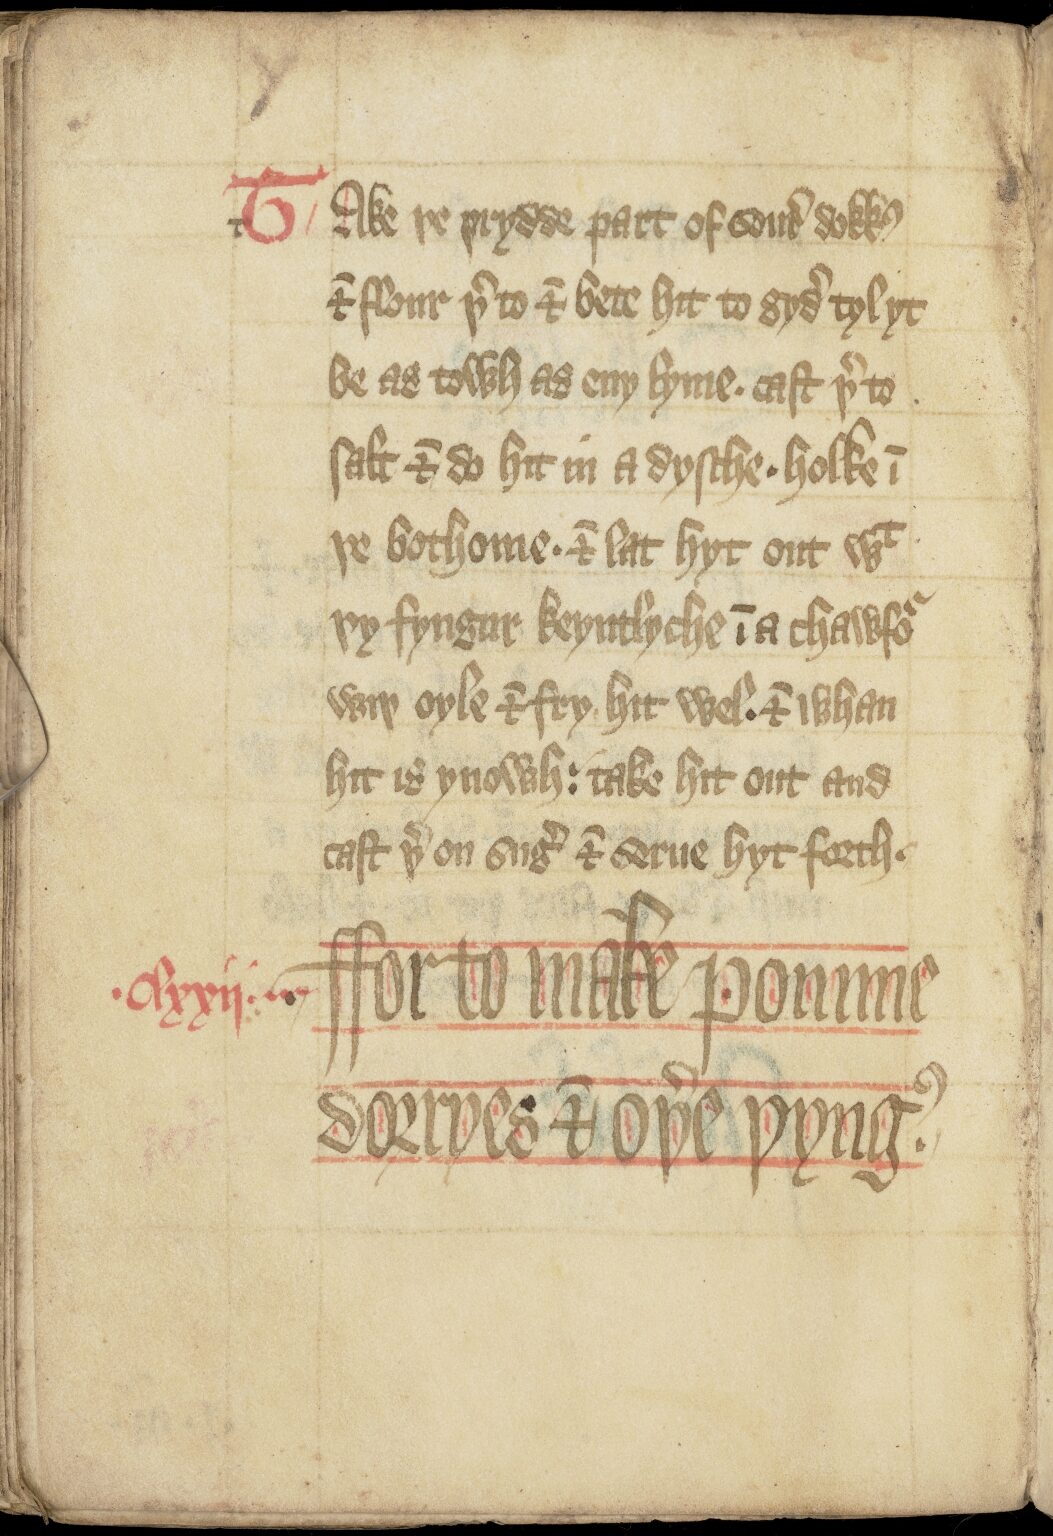 TAke þe þrydde part of sour̉ dokkꝭ
⁊̄ flour þ̉ to ⁊̄ bete hit to gyd̉ tyl yt
be as towh as eny lyme. cast þ̉ to
salt ⁊̄ do hit in a dysche. holke ī
þe bothome. ⁊̄ lat hyt out wͭ
þy fyngur keyntlyche ī a chawfoᷓ
wiþ oyle ⁊̄ fry hit wel. ⁊̄ whan
hit is ynowh: take hit out and
cast þ̉ on sug̉ ⁊̄ serue hyt forth.
.clxxij. ffor to make pomme
dorryes ⁊̄ oþ̉e þyngꝭ.